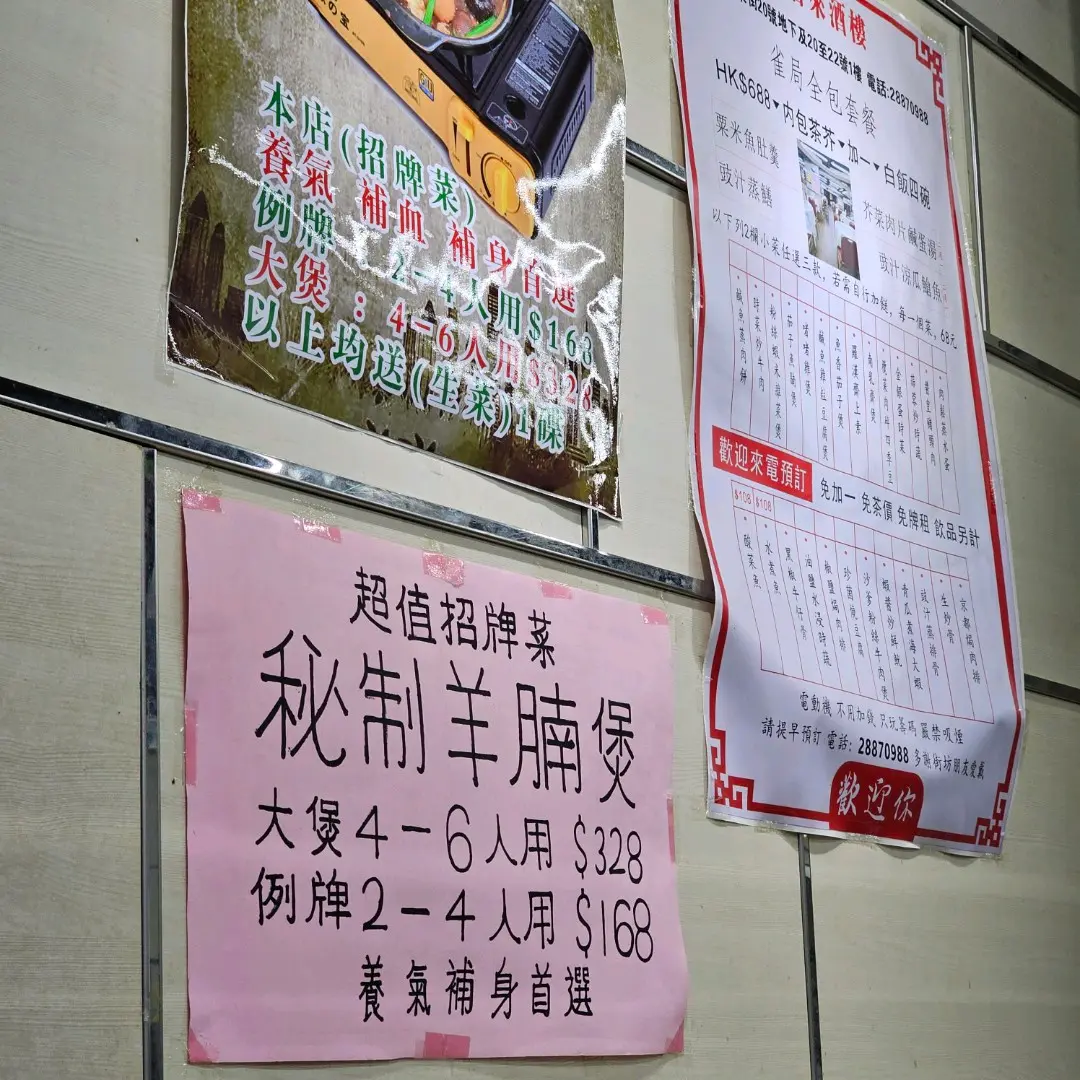 本店(招牌菜)
養氣 補血 補身首選
例牌 2-4人用$168
大煲:4-6人用$328
以上均送(生菜)1碟
超值招牌菜
秘制羊腩煲
大煲4-6人用 $328
例牌2-4人用 $168
養氣補身首選
來酒樓
街20號地下及20至22號1樓 電話:28870988
雀局全包套餐
HK$688▼內包茶芥▼加一▼白飯四碗
粟米魚肚羹
芥菜肉片鹹蛋湯
豉汁蒸鱔
豉汁涼瓜鱔魚
以下列2欄小菜任選三款,若需自行加餸,每一個菜,68元
鹹魚蒸肉餅
時菜炒牛肉
粉絲蝦米雜菜煲
茄子魚鬆煲
啫啫雞煲
鹹魚雞粒豆腐煲
魚香茄子煲
羅漢齋上素
南乳齋煲
欖菜肉碎四季豆
金銀蛋時菜
蒜蓉炒時蔬
肉鬆蒸水蛋
歡迎來電預訂
免加一 免茶價 免牌租 飲品另計
$108 $108
酸菜魚
水煮魚
黑椒牛仔骨
滷鹽水浸時蔬
椒鹽焗肉排
珍菌炆豆腐
沙爹粉絲牛肉煲
蝦醬炒鮮魷
青瓜煮海大蝦
豉汁蒸排骨
生炒骨
京都焗肉排
電動機 不用加錢 只玩籌碼 嚴禁吸煙
請提早預訂 電話: 28870988 多謝街坊朋友愛戴
歡迎你